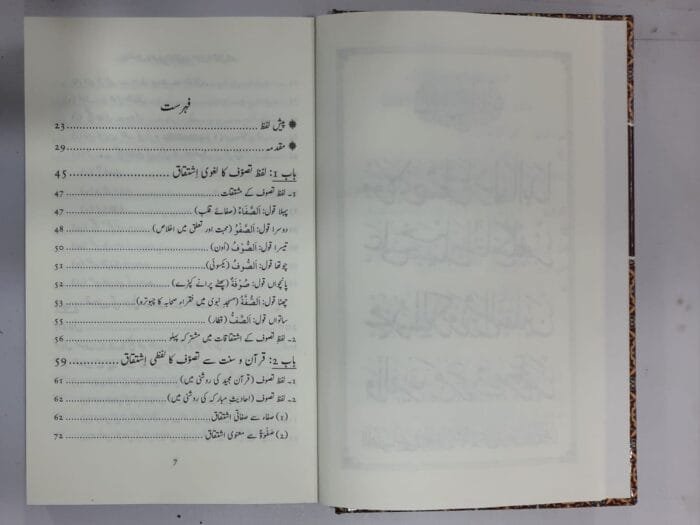 فہرست
❁ پیش لفظ ........ 23
❁ مقدمہ ........ 29
باب 1: لفظ تصوّف کا لغوی اِشتقاق ........ 45
1۔ لفظ تصوف کے مشتقات ........ 47
پہلا قول: اَلصَّفَاءُ (صفائے قلب) ........ 47
دوسرا قول: اَلصَّفْوُ (محبت اور تعلق میں اخلاص) ........ 48
تیسرا قول: اَلصُّوْفُ (اُون) ........ 50
چوتھا قول: اَلصُّوفُ (یکسوئی) ........ 51
پانچواں قول: صُوْفَةٌ (پھٹے پرانے کپڑے) ........ 52
چھٹا قول: اَلصُّفَّةُ (مسجدِ نبوی میں فقراء صحابہ کا چبوترہ) ........ 53
ساتواں قول: اَلصَّفُّ (قطار) ........ 55
2۔ لفظ تصوف کے اشتقاقات میں مشترکہ پہلو ........ 56
باب 2: قرآن و سنت سے تصوّف کا لفظی اِشتقاق ........ 59
1۔ لفظ تصوف (قرآن مجید کی روشنی میں) ........ 61
2۔ لفظ تصوف (احادیثِ مبارکہ کی روشنی میں) ........ 62
(1) صفاء سے صفاتی اشتقاق ........ 62
(2) صَفْوَةٌ سے معنوی اشتقاق ........ 72
7